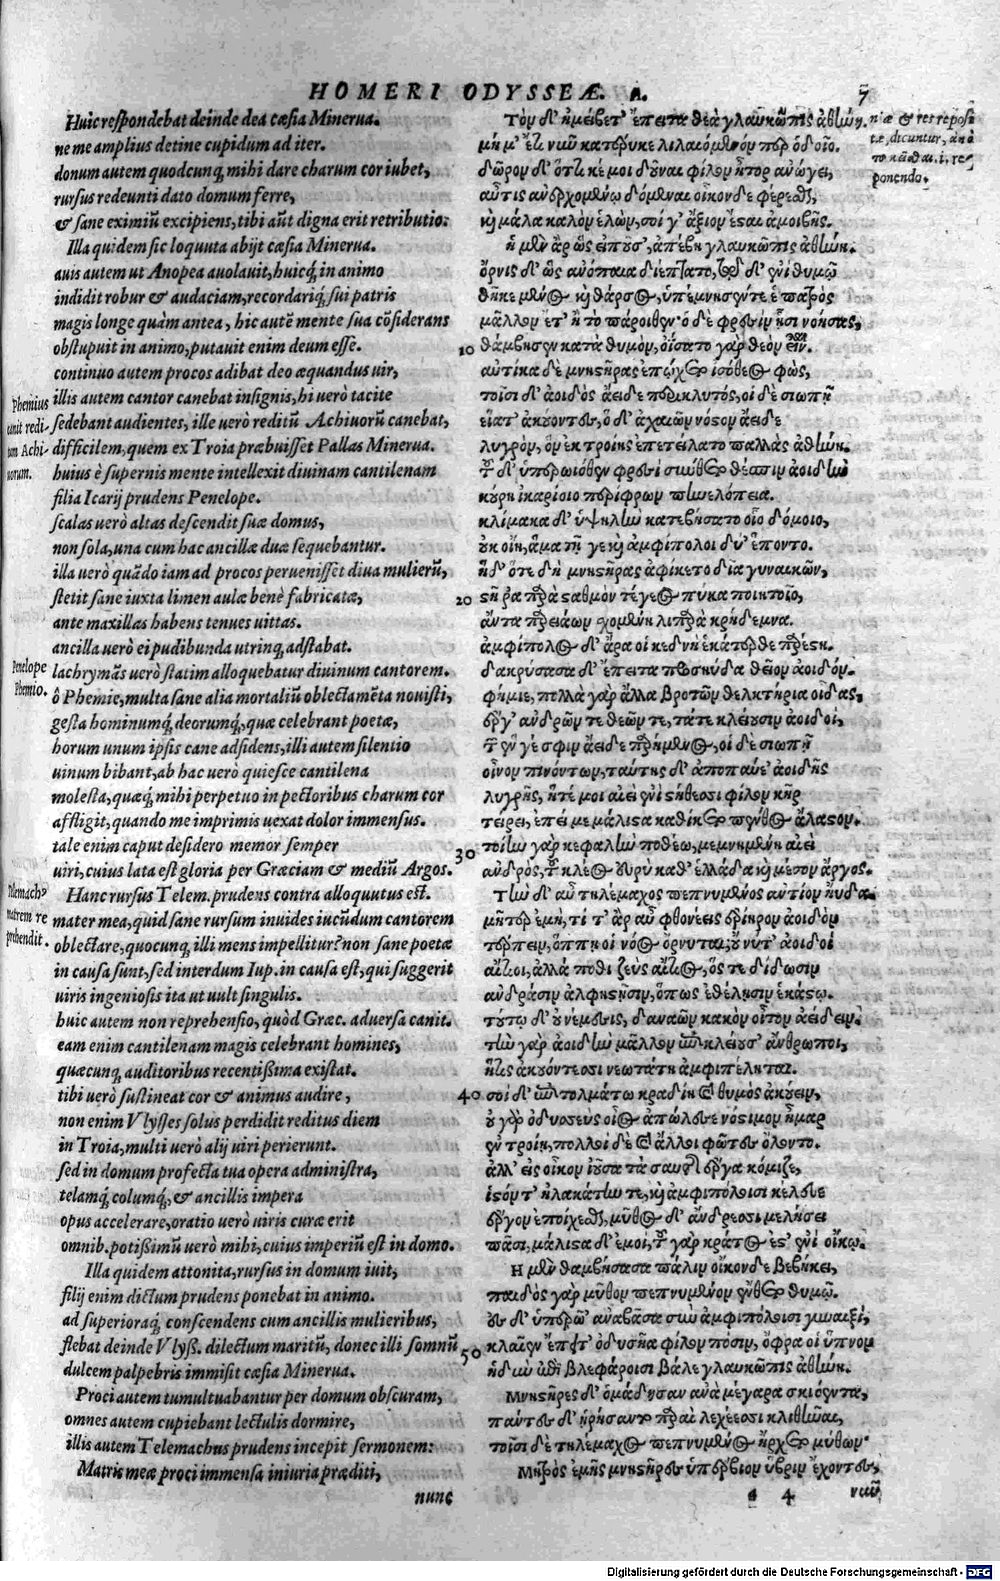 HOMERI ODYSSEÆ. A. 7
Huic respondebat deinde dea cæsia Minerua.
ne me amplius detine cupidum ad iter.
donum autem quodcunq; mihi dare charum cor iubet,
rursus redeunti dato domum ferre,
& sane eximiū excipiens, tibi aūt digna erit retributio:
Illa quidem sic loquuta abijt cæsia Minerua.
auis autem ut Anopea auolauit, huicq́; in animo
indidit robur & audaciam, recordariq́; sui patris
magis longe quàm antea, hic autē mente sua cōsiderans
obstupuit in animo, putauit enim deum esse.
continuo autem procos adibat deo æquandus uir,
illis autem cantor canebat insignis, hi uerò tacite
sedebant audientes, ille uerò reditū Achiuorū canebat,
difficilem, quem ex Troia præbuisset Pallas Minerua.
huius è supernis mente intellexit diuinam cantilenam
filia Icarij prudens Penelope.
scalas uerò altas descendit suæ domus,
non sola, una cum hac ancillæ duæ sequebantur.
illa uerò quādo iam ad procos peruenisset diua mulierū,
stetit sane iuxta limen aulæ benè fabricatæ,
ante maxillas habens tenues uittas.
ancilla uerò ei pudibunda utrinq; adstabat.
lachrymās uerò statim alloquebatur diuinum cantorem.
ô Phemie, multa sane alia mortaliū oblectamēta nouisti,
gesta hominumq́; deorumq́;, quæ celebrant poetæ,
horum unum ipsis cane adsidens, illi autem silentio
uinum bibant, ab hac uerò quiesce cantilena
molesta, quæq́; mihi perpetuo in pectoribus charum cor
affligit, quando me imprimis uexat dolor immensus.
tale enim caput desidero memor semper
uiri, cuius lata est gloria per Græciam & mediū Argos.
Hanc rursus Telem. prudens contra alloquutus est.
mater mea, quid sane rursum inuides iucūdum cantorem
oblectare, quocunq; illi mens impellitur? non sane poetæ
in causa sunt, sed interdum Iup. in causa est, qui suggerit
uiris ingeniosis ita ut uult singulis.
huic autem non reprehensio, quòd Græc. aduersa canit.
eam enim cantilenam magis celebrant homines,
quæcunq; auditoribus recentissima existat.
tibi uerò sustineat cor & animus audire,
non enim Vlysses solus perdidit reditus diem
in Troia, multi uerò alij uiri perierunt.
sed in domum profecta tua opera administra,
telamq́; columq́;, & ancillis impera
opus accelerare, oratio uerò uiris curæ erit
omnib. potissimū uerò mihi, cuius imperiū est in domo.
Illa quidem attonita, rursus in domum iuit,
filij enim dictum prudens ponebat in animo.
ad superioraq́; conscendens cum ancillis mulieribus,
flebat deinde Vlyss. dilectum maritū, donec illi somnū
dulcem palpebris immisit cæsia Minerua.
Proci autem tumultuabantur per domum obscuram,
omnes autem cupiebant lectulis dormire,
illis autem Telemachus prudens incepit sermonem:
Matris meæ proci immensa iniuria præditi,
nunc
Phemius
canit redi-
tum Achi-
uorum.
Penelope
Phemio.
Telemach⁹
matrem re
prehendit.
Τὸν δ' ἠμείβετ' ἔπειτα θεὰ γλαυκῶπις ἀθήνη.
μή μ' ἔτι νῦν κατέρυκε λιλαιόμενόν περ ὁδοῖο.
δῶρον δ' ὅττι κέ μοι δοῦναι φίλον ἦτορ ἀνώγει,
αὖτις ἀνερχομένῳ δόμεναι οἶκον δε φέρεσθαι,
καὶ μάλα καλὸν ἑλών, σοί γ' ἄξιον ἔσαι ἀμοιβῆς.
ἡ μὲν ἄρ ὣς εἰποῦσ', ἀπέβη γλαυκῶπις ἀθήνη.
ὄρνις δ' ὣς ἀνόπαια διέπτατο, τῷ δ' ἐνὶ θυμῷ
θῆκε μένος καὶ θάρσος, ὑπέμνησέν τε ἑ πατρὸς
μᾶλλον ἔτ' ἢ τὸ πάροιθεν· ὁ δὲ φρεσὶν ᾗσι νοήσας,
10 θάμβησεν κατὰ θυμόν, ὀΐσατο γὰρ θεὸν εἶναι.
αὐτίκα δὲ μνηστῆρας ἐπῴχετο ἰσόθεος φώς,
τοῖσι δ' ἀοιδὸς ἄειδε περικλυτός, οἱ δὲ σιωπῇ
εἵατ' ἀκούοντες, ὁ δ' ἀχαιῶν νόστον ἄειδε
λυγρόν, ὃν ἐκ τροίης ἐπετείλατο παλλὰς ἀθήνη.
τοῦ δ' ὑπερωιόθεν φρεσὶ σύνθετο θέσπιν ἀοιδὴν
κούρη ἰκαρίοιο περίφρων πηνελόπεια.
κλίμακα δ' ὑψηλὴν κατεβήσατο οἷο δόμοιο,
οὐκ οἴη, ἅμα τῇ γε καὶ ἀμφίπολοι δύ' ἕποντο.
ἡ δ' ὅτε δὴ μνηστῆρας ἀφίκετο δῖα γυναικῶν,
20 στῆ ῥα παρὰ σταθμὸν τέγεος πύκα ποιητοῖο,
ἄντα παρειάων σχομένη λιπαρὰ κρήδεμνα.
ἀμφίπολος δ' ἄρα οἱ κεδνὴ ἑκάτερθε παρέστη.
δακρύσασα δ' ἔπειτα προσηύδα θεῖον ἀοιδόν.
φήμιε, πολλὰ γὰρ ἄλλα βροτῶν θελκτήρια οἶδας,
ἔργ' ἀνδρῶν τε θεῶν τε, τά τε κλείουσιν ἀοιδοί,
τῶν ἕν γέ σφιν ἄειδε παρήμενος, οἱ δὲ σιωπῇ
οἶνον πινόντων, ταύτης δ' ἀποπαύε' ἀοιδῆς
λυγρῆς, ἥτέ μοι αἰεὶ ἐνὶ στήθεσσι φίλον κῆρ
τείρει, ἐπεί με μάλιστα καθίκετο πένθος ἄλαστον.
30 τοίην γὰρ κεφαλὴν ποθέω, μεμνημένη αἰεὶ
ἀνδρός, τοῦ κλέος εὐρὺ καθ' ἑλλάδα καὶ μέσον ἄργος.
Τὴν δ' αὖ τηλέμαχος πεπνυμένος ἀντίον ηὔδα.
μῆτερ ἐμή, τί τ' ἄρ αὖ φθονέεις ἐρίηρον ἀοιδὸν
τέρπειν, ὅππη οἱ νόος ὄρνυται; οὔ νυ τ' ἀοιδοὶ
αἴτιοι, ἀλλά ποθι ζεὺς αἴτιος, ὅς τε δίδωσιν
ἀνδράσιν ἀλφηστῇσιν, ὅπως ἐθέλησιν ἑκάστῳ.
τούτῳ δ' οὐ νέμεσις, δαναῶν κακὸν οἶτον ἀείδειν.
τὴν γὰρ ἀοιδὴν μᾶλλον ἐπικλείουσ' ἄνθρωποι,
ἥτις ἀκουόντεσσι νεωτάτη ἀμφιπέληται.
40 σοὶ δ' ἐπιτολμάτω κραδίη καὶ θυμὸς ἀκούειν,
οὐ γὰρ ὀδυσσεὺς οἶος ἀπώλεσε νόστιμον ἦμαρ
ἐν τροίῃ, πολλοὶ δὲ καὶ ἄλλοι φῶτες ὄλοντο.
ἀλλ' εἰς οἶκον ἰοῦσα τὰ σαυτῆς ἔργα κόμιζε,
ἱστόν τ' ἠλακάτην τε, καὶ ἀμφιπόλοισι κέλευε
ἔργον ἐποίχεσθαι, μῦθος δ' ἄνδρεσσι μελήσει
πᾶσι, μάλιστα δ' ἐμοί, τοῦ γὰρ κράτος ἔστ' ἐνὶ οἴκῳ.
Η μὲν θαμβήσασα πάλιν οἶκον δε βεβήκει,
παιδὸς γὰρ μῦθον πεπνυμένον ἔνθετο θυμῷ.
ἐς δ' ὑπερῷ' ἀναβᾶσα σὺν ἀμφιπόλοισι γυναιξί,
50 κλαῖεν ἔπειτ' ὀδυσῆα φίλον πόσιν, ὄφρα οἱ ὕπνον
ἡδὺν ἐπὶ βλεφάροισι βάλε γλαυκῶπις ἀθήνη.
Μνηστῆρες δ' ὁμάδησαν ἀνὰ μέγαρα σκιόεντα,
πάντες δ' ἠρήσαντο παραὶ λεχέεσσι κλιθῆναι,
τοῖσι δὲ τηλέμαχος πεπνυμένος ἤρχετο μύθων·
Μητρὸς ἐμῆς μνηστῆρες ὑπέρβιον ὕβριν ἔχοντες,
a 4 νῦν
næ & res reposi
tæ, dicuntur, ἀπὸ
re
ponendo.
Digitalisierung gefördert durch die Deutsche Forschungsgemeinschaft - DFG